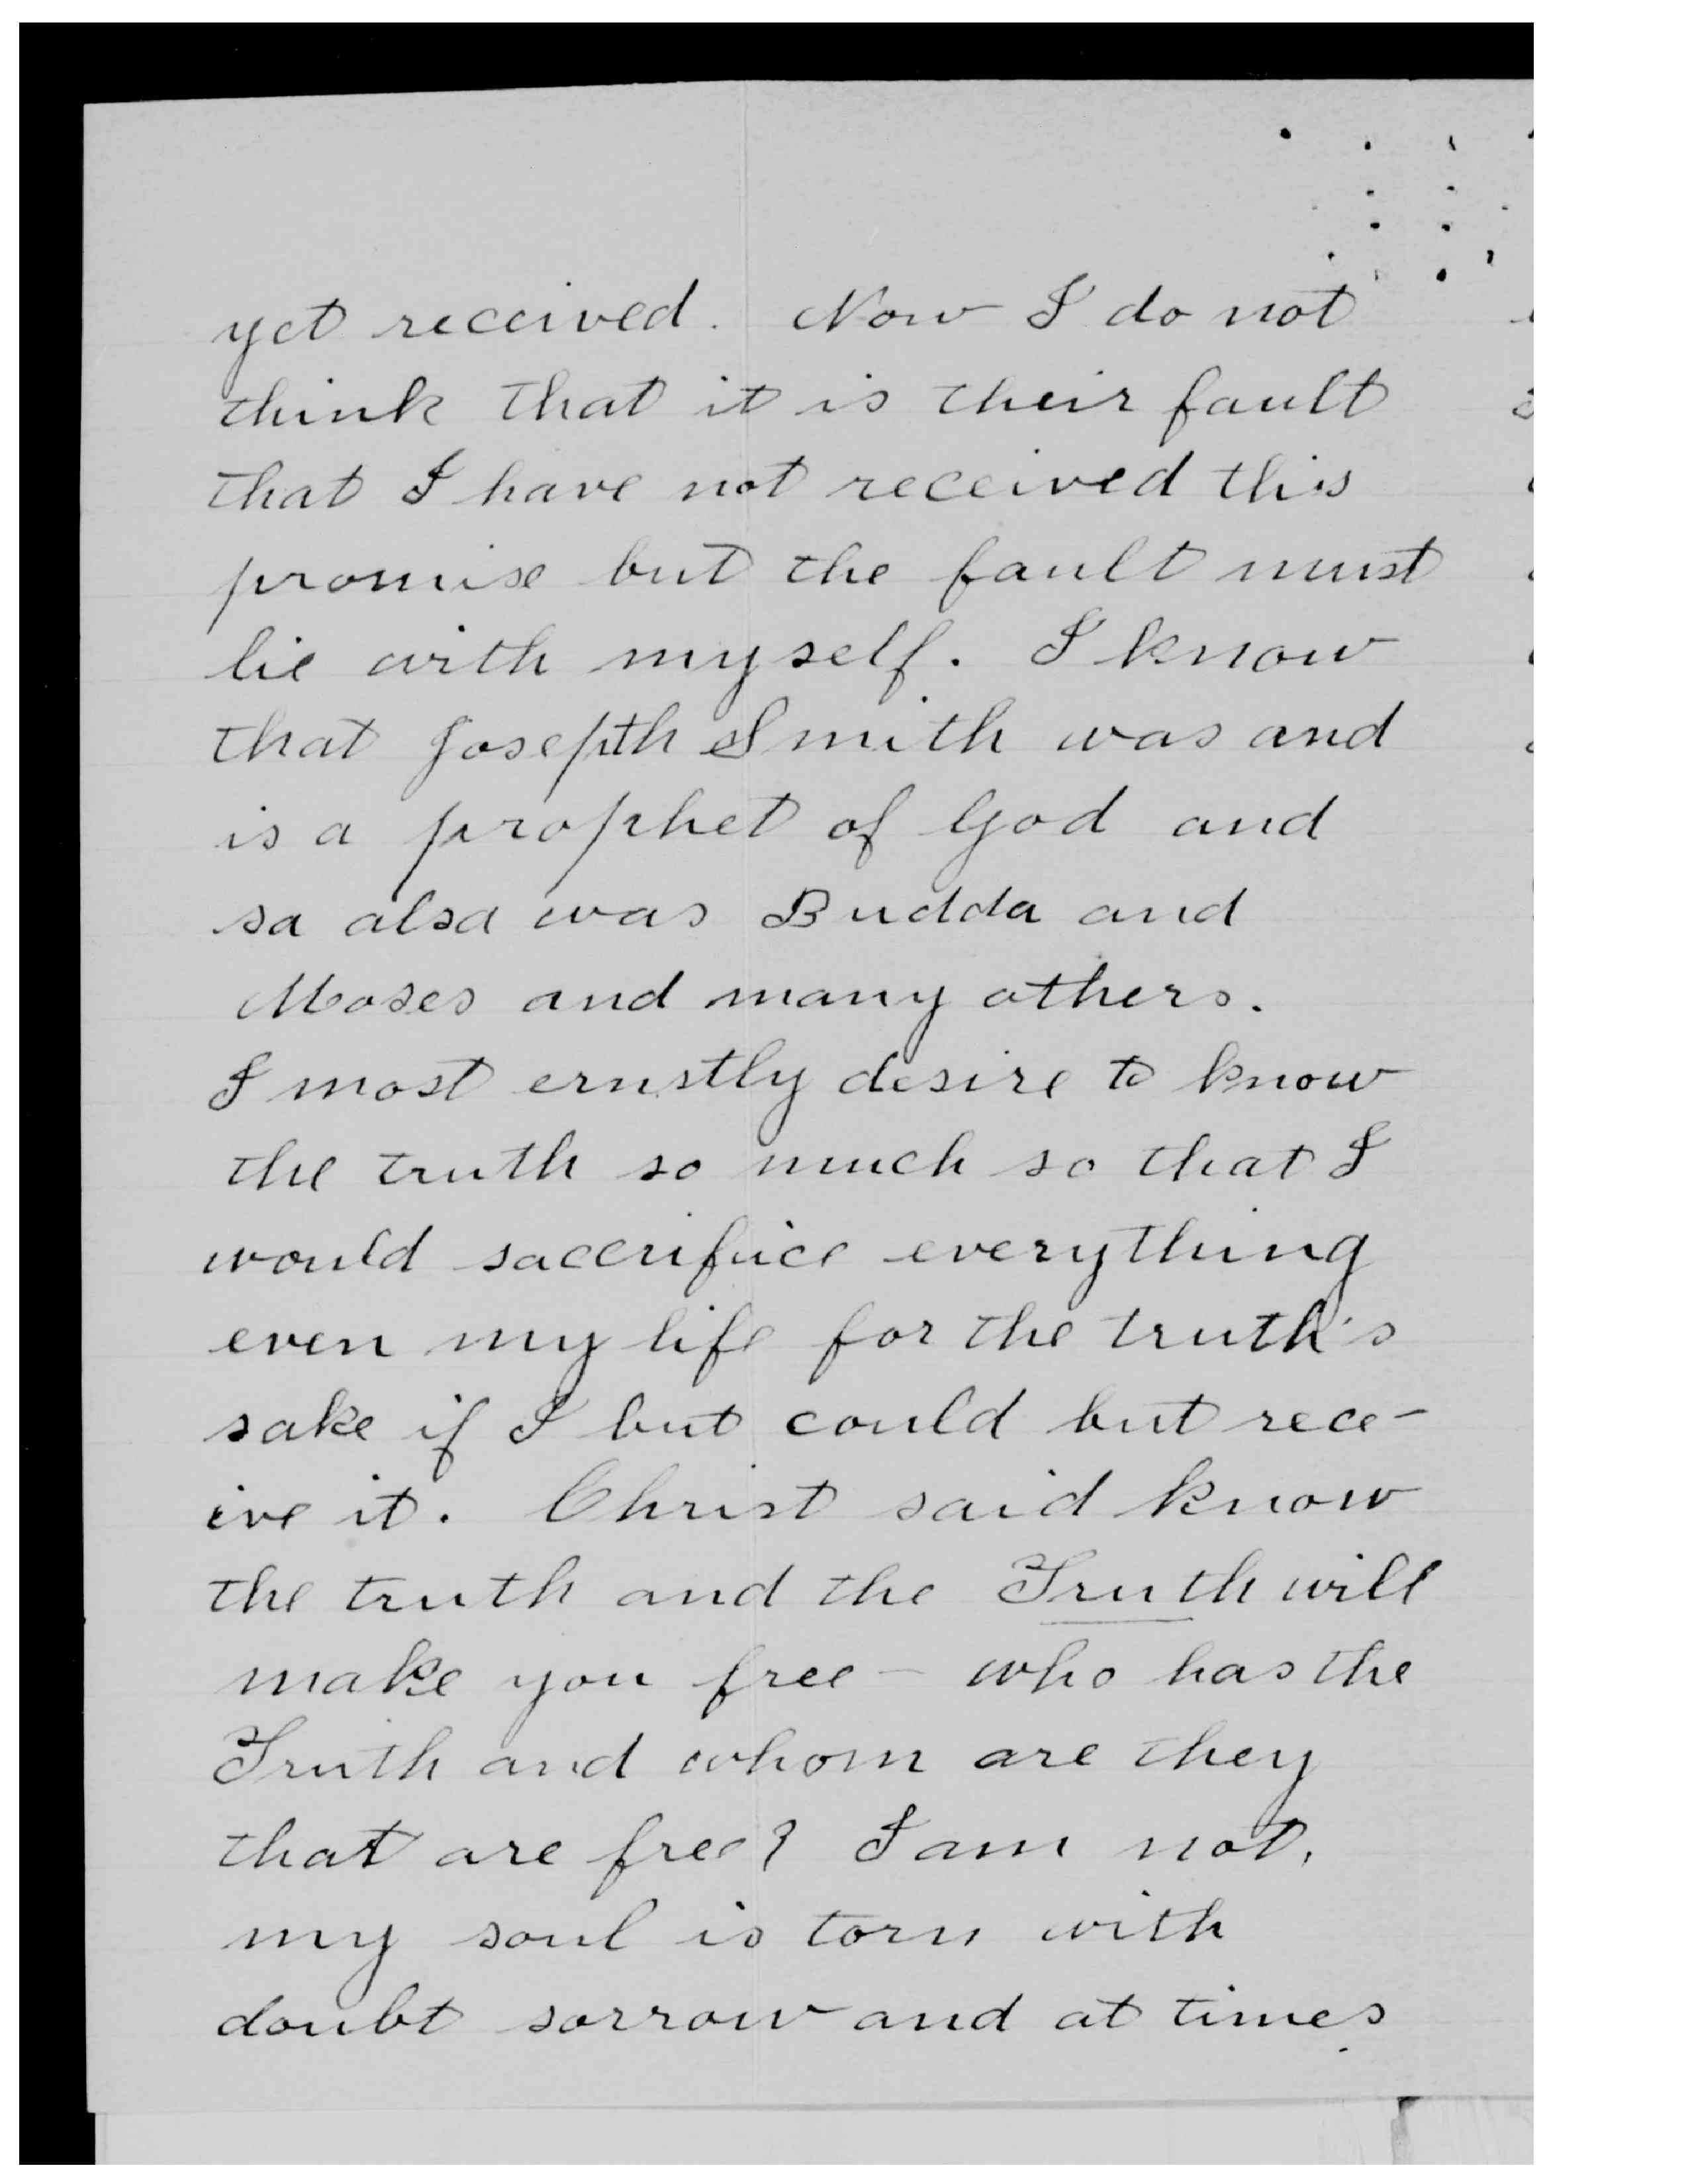 yet received. Now I do not
think that it is their fault
that I have not received this
promise but the fault must
lie with myself. I know
that Josepth Smith was and
is a prophet of God and
so also was Budda and
Moses and many others.
I most ernstly desire to know
the truth so much so that I
would saccrifice everything
even my life for the truth's
sake if I but could but rece-
ive it. Christ said know
the truth and the Truth will
make you free - who has the
Truth and whom are they
that are free? I am not,
my soul is torn with
doubt sorrow and at times